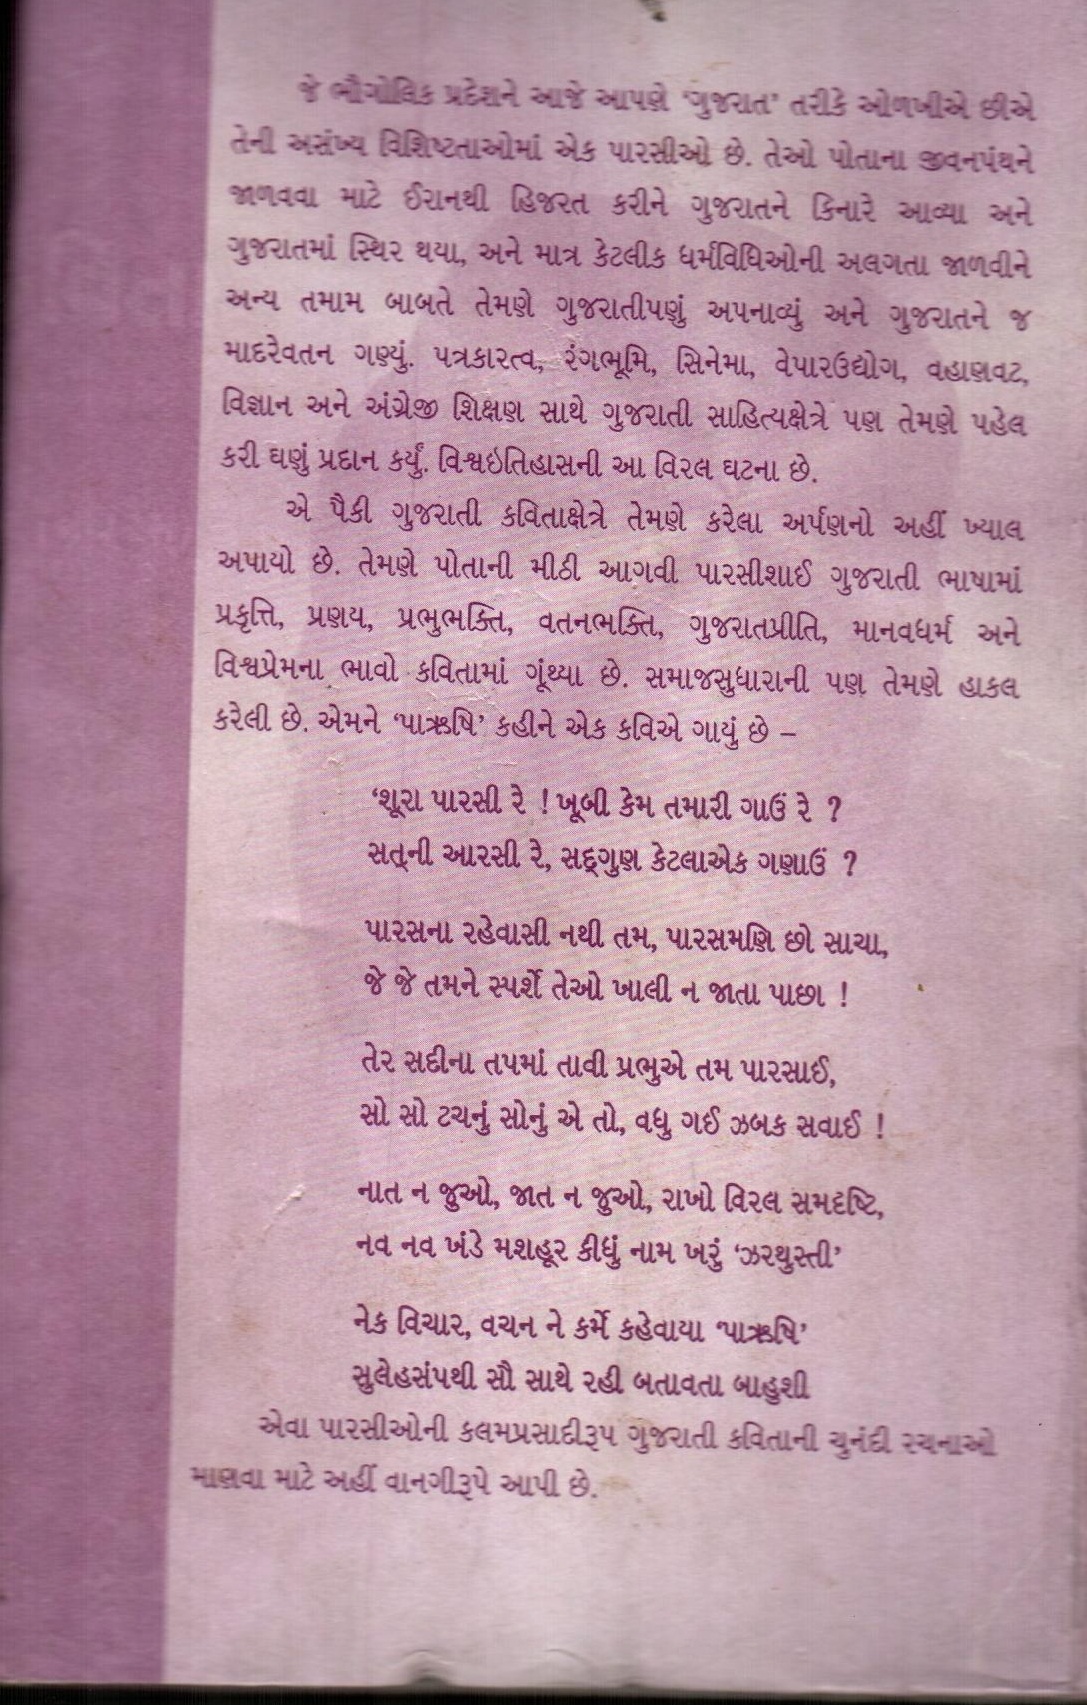 જે ભૌગોલિક પ્રદેશને આજે આપણે ‘ગુજરાત’ તરીકે ઓળખીએ છીએ
તેની અસંખ્ય વિશિષ્ટતાઓમાં એક પારસીઓ છે. તેઓ પોતાના જીવનપંથને
જાળવવા માટે ઈરાનથી હિજરત કરીને ગુજરાતને કિનારે આવ્યા અને
ગુજરાતમાં સ્થિર થયા, અને માત્ર કેટલીક ધર્મવિધિઓની અલગતા જાળવીને
અન્ય તમામ બાબતે તેમણે ગુજરાતીપણું અપનાવ્યું અને ગુજરાતને જ
માદરેવતન ગણ્યું. પત્રકારત્વ, રંગભૂમિ, સિનેમા, વેપારઉદ્યોગ, વહાણવટ,
વિજ્ઞાન અને અંગ્રેજી શિક્ષણ સાથે ગુજરાતી સાહિત્યક્ષેત્રે પણ તેમણે પહેલ
કરી ઘણું પ્રદાન કર્યું. વિશ્વઇતિહાસની આ વિરલ ઘટના છે.
એ પૈકી ગુજરાતી કવિતાક્ષેત્રે તેમણે કરેલા અર્પણનો અહીં ખ્યાલ
અપાયો છે. તેમણે પોતાની મીઠી આગવી પારસીશાઈ ગુજરાતી ભાષામાં
પ્રકૃત્તિ, પ્રણય, પ્રભુભક્તિ, વતનભક્તિ, ગુજરાતપ્રીતિ, માનવધર્મ અને
વિશ્વપ્રેમના ભાવો કવિતામાં ગૂંથ્યા છે. સમાજસુધારાની પણ તેમણે હાકલ
કરેલી છે. એમને ‘પાઋષિ’ કહીને એક કવિએ ગાયું છે –
‘શૂરા પારસી રે ! ખૂબી કેમ તમારી ગાઉં રે ?
સત્‌ની આરસી રે, સદ્‌ગુણ કેટલાએક ગણાઉં ?
પારસના રહેવાસી નથી તમ, પારસમણિ છો સાચા,
જે જે તમને સ્પર્શે તેઓ ખાલી ન જાતા પાછા !
તેર સદીના તપમાં તાવી પ્રભુએ તમ પારસાઈ,
સો સો ટચનું સોનું એ તો, વધુ ગઈ ઝબક સવાઈ !
નાત ન જુઓ, જાત ન જુઓ, રાખો વિરલ સમદૃષ્ટિ,
નવ નવ ખંડે મશહૂર કીધું નામ ખરું ‘ઝરથુસ્તી’
નેક વિચાર, વચન ને કર્મે કહેવાયા ‘પાઋષિ’
સુલેહસંપથી સૌ સાથે રહી બતાવતા બાહુશી
એવા પારસીઓની કલમપ્રસાદીરૂપ ગુજરાતી કવિતાની ચુનંદી રચનાઓ
માણવા માટે અહીં વાનગીરૂપે આપી છે.